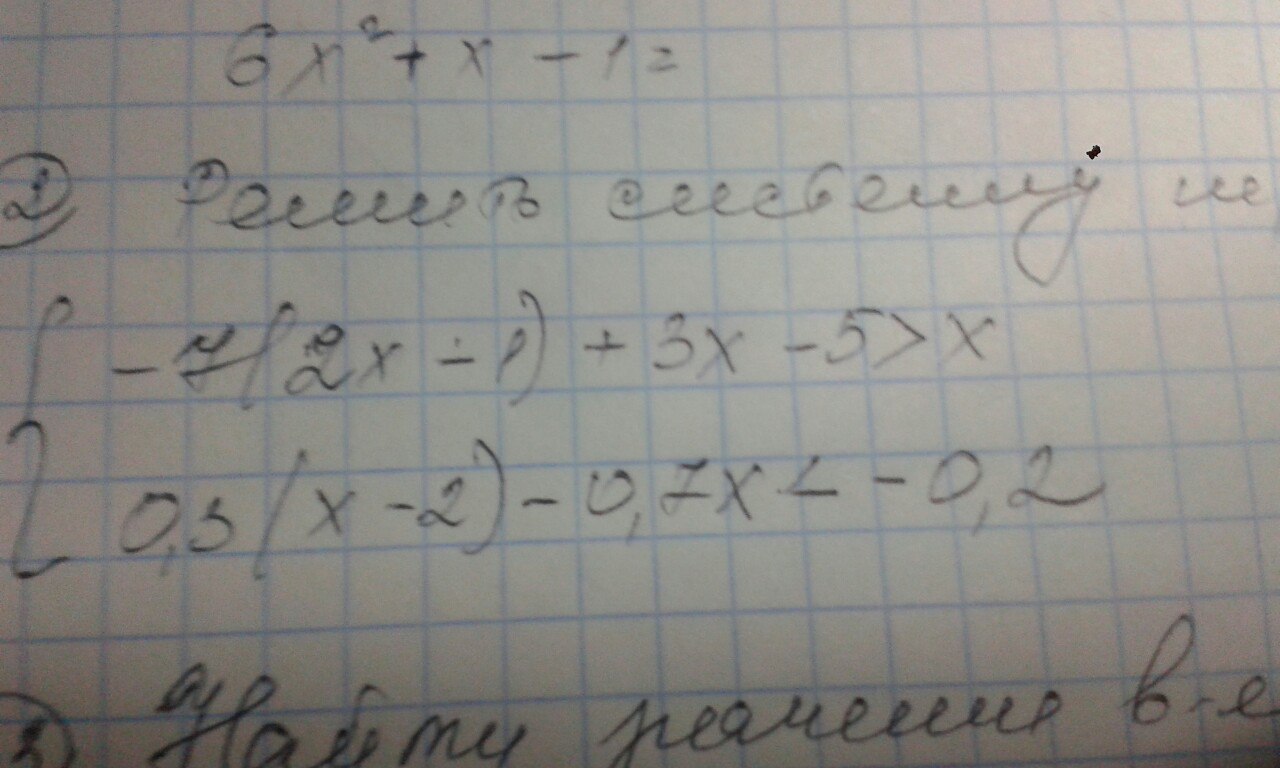 6x² + x - 1 =
② Решить систему
-7(2x - 1) + 3x - 5 > x
0,3(x - 2) - 0,7x < -0,2
а) Найти значение в-е